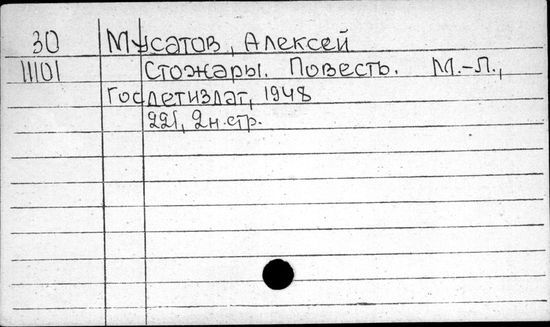 30 Мусатов, Алексей
11101 Стожары. Повесть. М.-Л.,
Госдетиздат, 1948
221, 2н.стр.